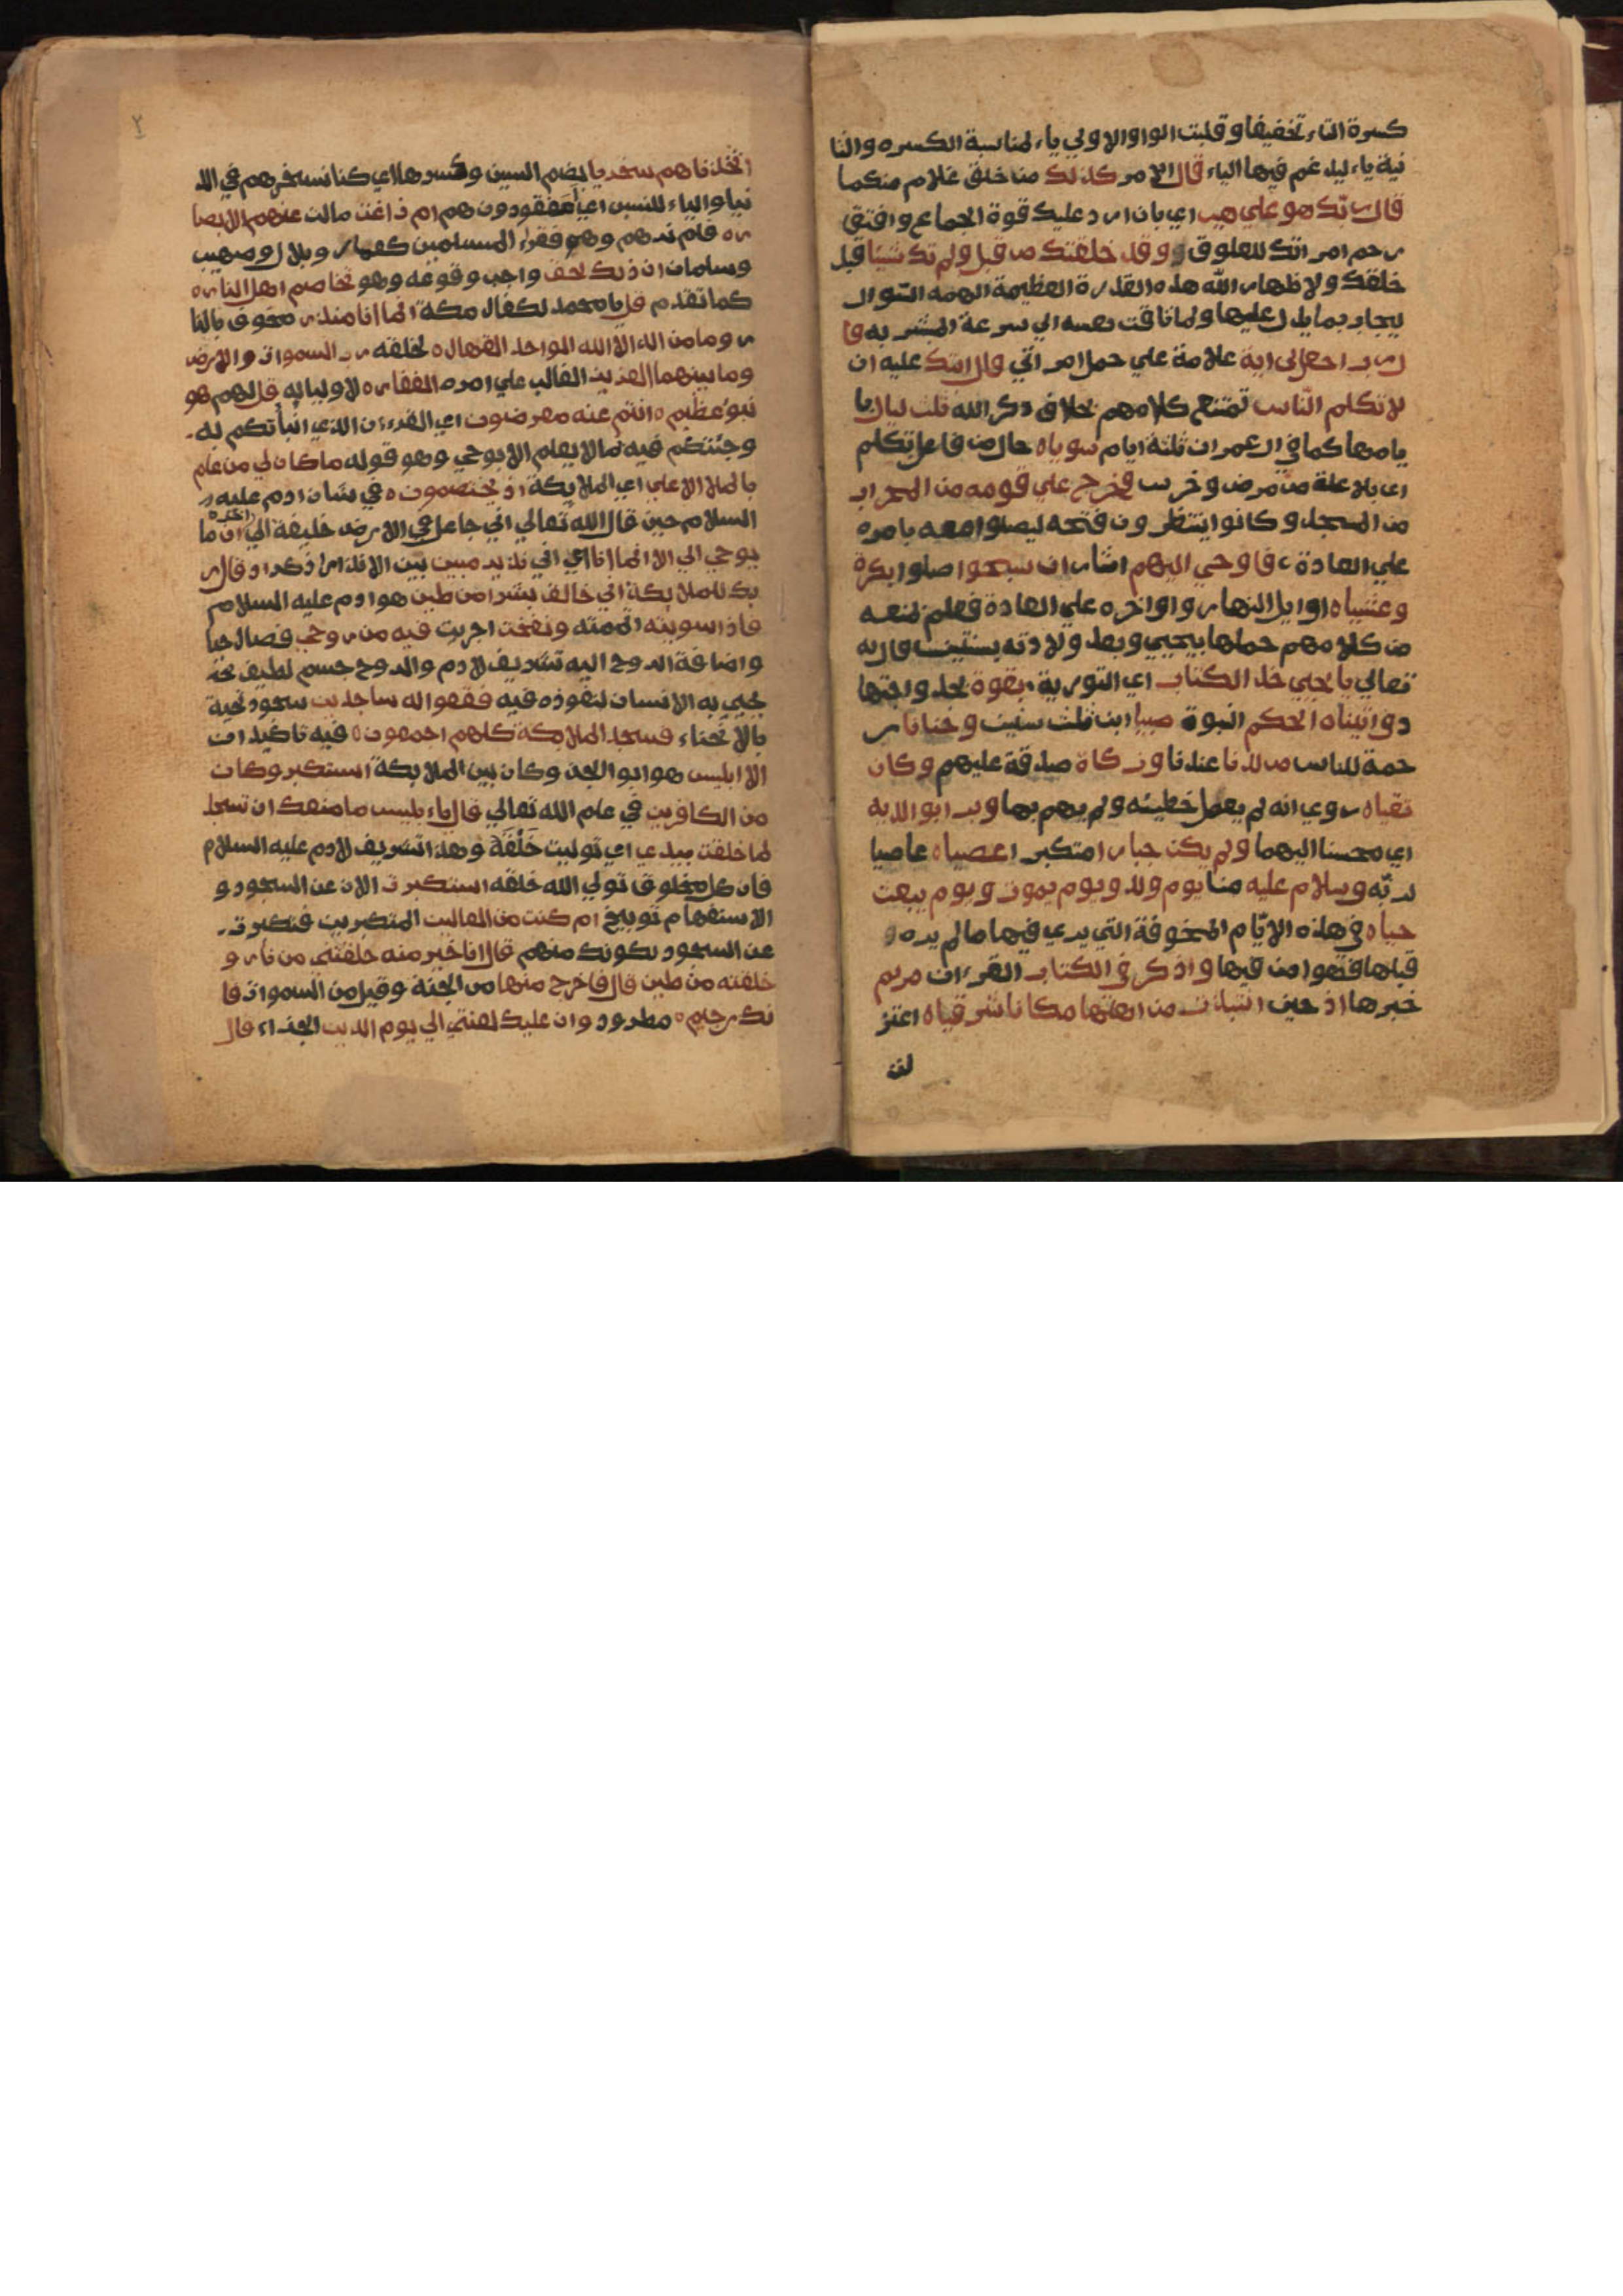 كسرة التاء تخفيفا وقلبت الواو الاولي ياء لمناسبة الكسره والثا
نية ياء ليدغم فيها الياء قال الامر كذلك من خلق غلام منكما
قال ربك هو علي هين اي بان ارد عليك قوة الجماع وافتق
رحم امراتك للعلوق وقد خلقتك من قبل ولم تك شيئا قبل
خلقك ولاظهار الله هذه القدرة العظيمة الهمه السؤال
ليجاب بما يدل عليها ولما تاقت نفسه الي سرعة المبشر به قا
ل رب اجعل لي اية علامة علي حمل امراتي قال ايتك عليه ان
لا تكلم الناس تمتنع كلامهم بخلاف ذكر الله ثلث ليال با
يامها كما في ال عمران ثلثة ايام سوياه حال من فاعل تكلم
اي بلا علة من مرض وخرس فخرج علي قومه من المحراب
من المسجد وكانوا ينتظرون فتحه ليصلوا معه بامره
علي العادة فاوحي اليهم اشار ان سبحوا صلوا بكرة
وعشياه اوايل النهار واواخره علي العادة فعلم بمنعه
من كلامهم حملها بيحيي وبعد ولادته بسنتين قال له
تعالي يا يحيي خذ الكتاب اي التورية بقوة بجد واجتها
د واتيناه الحكم النبوة صبيا ابن ثلث سنين وحنانا ر
حمة للناس من لدنا عندنا وزكاة صدقة عليهم وكان
تقياه روي انه لم يعمل خطيئه ولم يهم بها وبرا بوالديه
اي محسنا اليهما ولم يكن جبارا متكبرا عصياه عاصيا
لربه وسلام عليه منا يوم ولد ويوم يموت ويوم يبعث
حياه في هذه الايام المخوفة التي يري فيها ما لم يره
قبلها فهو امن فيها واذكر في الكتاب القرءان مريم
خبرها اذ حين انتبذت من اهلها مكانا شرقياه اعتز
لت
٢
اتخذناهم سخريا بضم السين وكسرها اي كنا نسخر بهم في الد
نيا والياء للنسب اي امفقودون هم ام زاغت مالت عنهم الابصا
ره فلم نرهم وهم فقراء المسلمين كعمار وبلال وصهيب
وسلمان ان ذلك لحق واجب وقوعه وهو تخاصم اهل الناره
كما تقدم قل يا محمد لكفار مكة انما انا منذر مخوف بالنا
ر وما من اله الا الله الواحد القهاره لخلقه رب السموات والارض
وما بينهما العزيز الغالب علي امره الغفاره لاوليايه قل لهم هو
نبؤ عظيمه انتم عنه معرضون اي القرءان الذي انبأتكم به
وجئتكم فيه بما لا يعلم الا بوحي وهو قوله ما كان لي من علم
بالملا الاعلي اي الملايكة اذ يختصمونه في شان ادم عليه
السلام حين قال الله تعالي اني جاعل في الارض خليفة الي اخره ان ما
يوحي الي الا انما انا اي اني نذير مبين بين الانذار اذكر اذ قال ر
بك للملايكة اني خالق بشرا من طين هو ادم عليه السلام
فاذا سويته اتممته ونفخت اجريت فيه من روحي فصار حيا
واضافة الروح اليه تشريف لادم والروح جسم لطيف
يحيي به الانسان لنفوذه فيه فقعوا له ساجدين سجود تحية
بالانحناء فسجد الملايكة كلهم اجمعون فيه تاكيدان
الا ابليس هو ابو الجن وكان بين الملايكة استكبر وكان
من الكافرين في علم الله تعالي قال ياء بليس ما منعك ان تسجد
لما خلقت بيدي اي توليت خلقه وهذا تشريف لادم عليه السلام
فان كل مخلوق تولي الله خلقه استكبرت الان عن السجود و
الاستفهام توبيخ ام كنت من العالين المتكبرين فتكبرت
عن السجود لكونك منهم قال انا خير منه خلقتني من نار و
خلقته من طين قال فاخرج منها من الجنة وقيل من السموات فا
نك رجيمه مطرود وان عليك لعنتي الي يوم الدين الجزاء قال